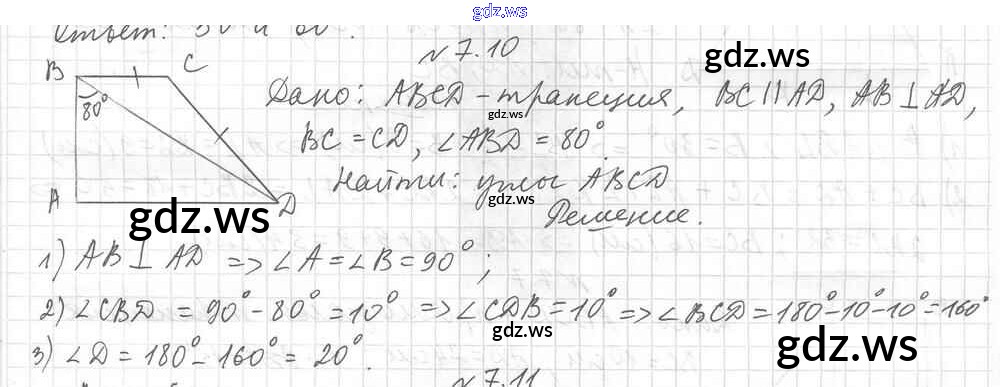 gdz.ws
Ответ: 30° и 60°.
№7.10
gdz.ws
B C
80°
A D
Дано: ABCD - трапеция, BC || AD, AB ⊥ AD,
gdz.ws
BC = CD, ∠ABD = 80°.
Найти: углы ABCD
gdz.ws
gdz.ws
Решение.
1) AB ⊥ AD => ∠A = ∠B = 90°;
2) ∠CBD = 90° - 80° = 10° => ∠CDB = 10° => ∠BCD = 180° - 10° - 10° = 160°
gdz.ws
3) ∠D = 180° - 160° = 20°.
gdz.ws
№7.11